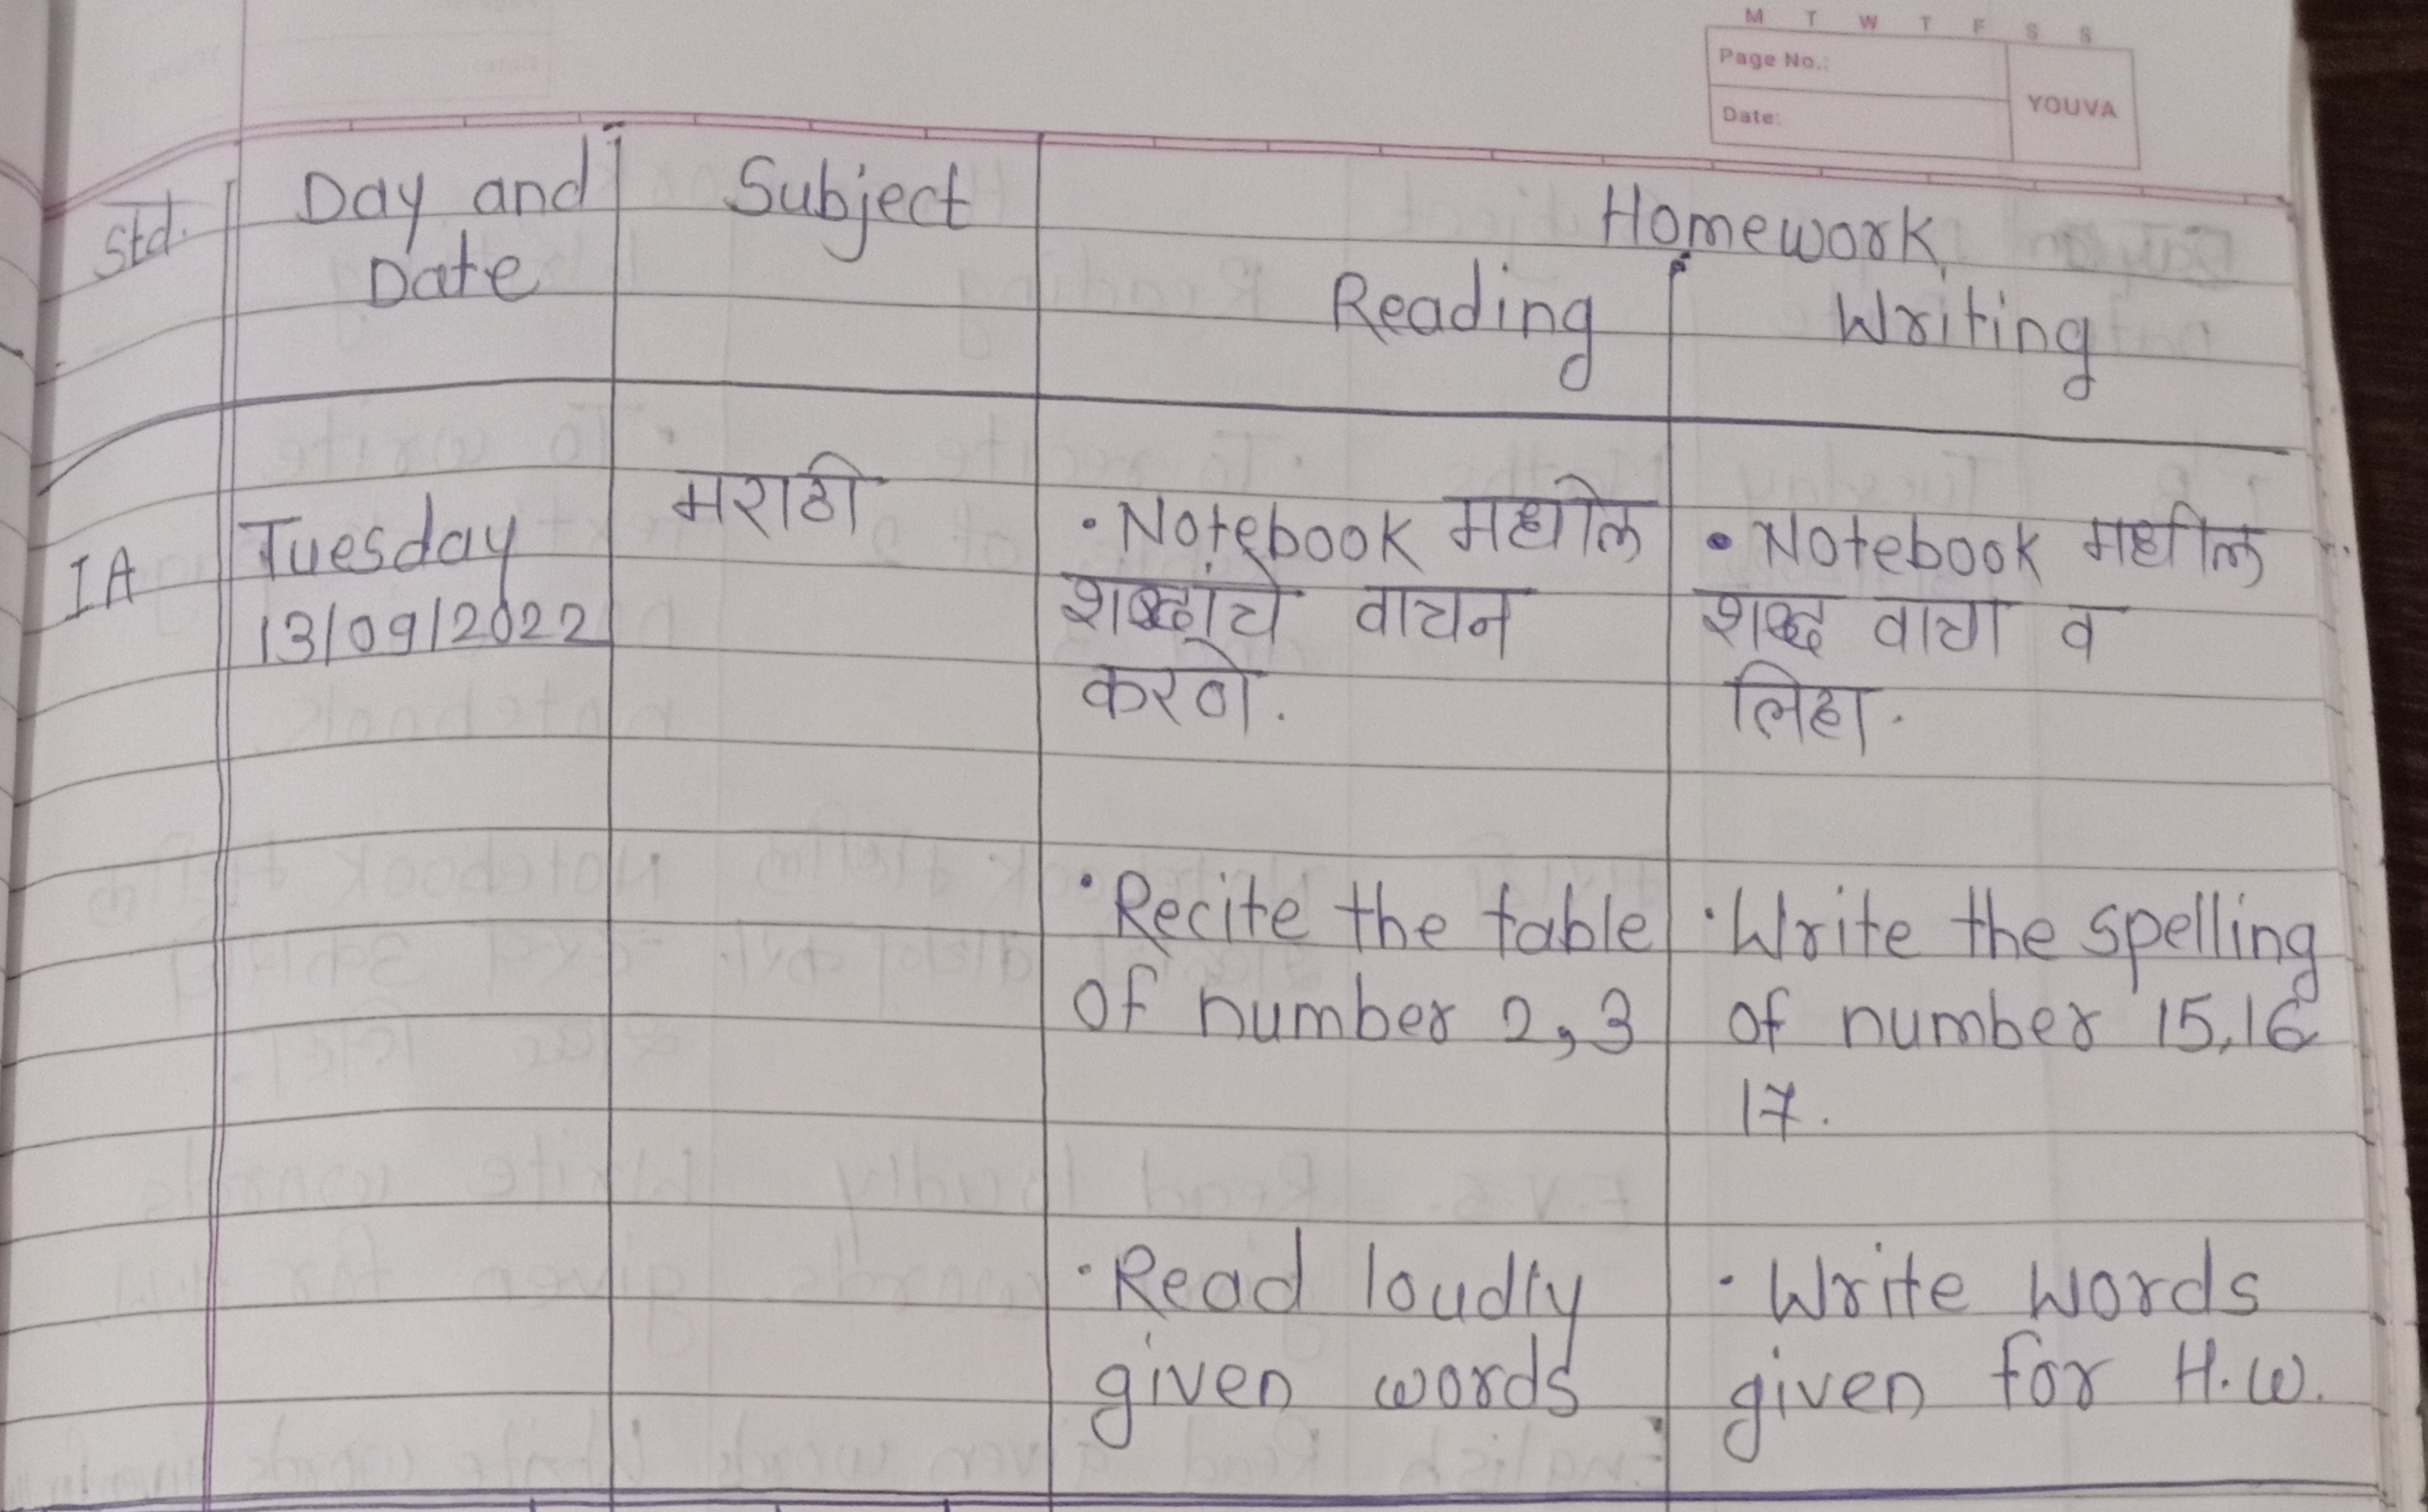 M T W T F S S
Page No.:
YOUVA
Date:
Std.
Day and
Date
Subject
Homework
Reading
Writing
IA
Tuesday
13/09/2022
मराठी
• Notebook मधील
शब्दांचे वाचन
करणे.
• Notebook मधील
शब्द वाचा व
लिहा.
• Recite the table
of number 2, 3
• Write the spelling
of number 15, 16
17.
• Read loudly
given words
• Write words
given for H.W.